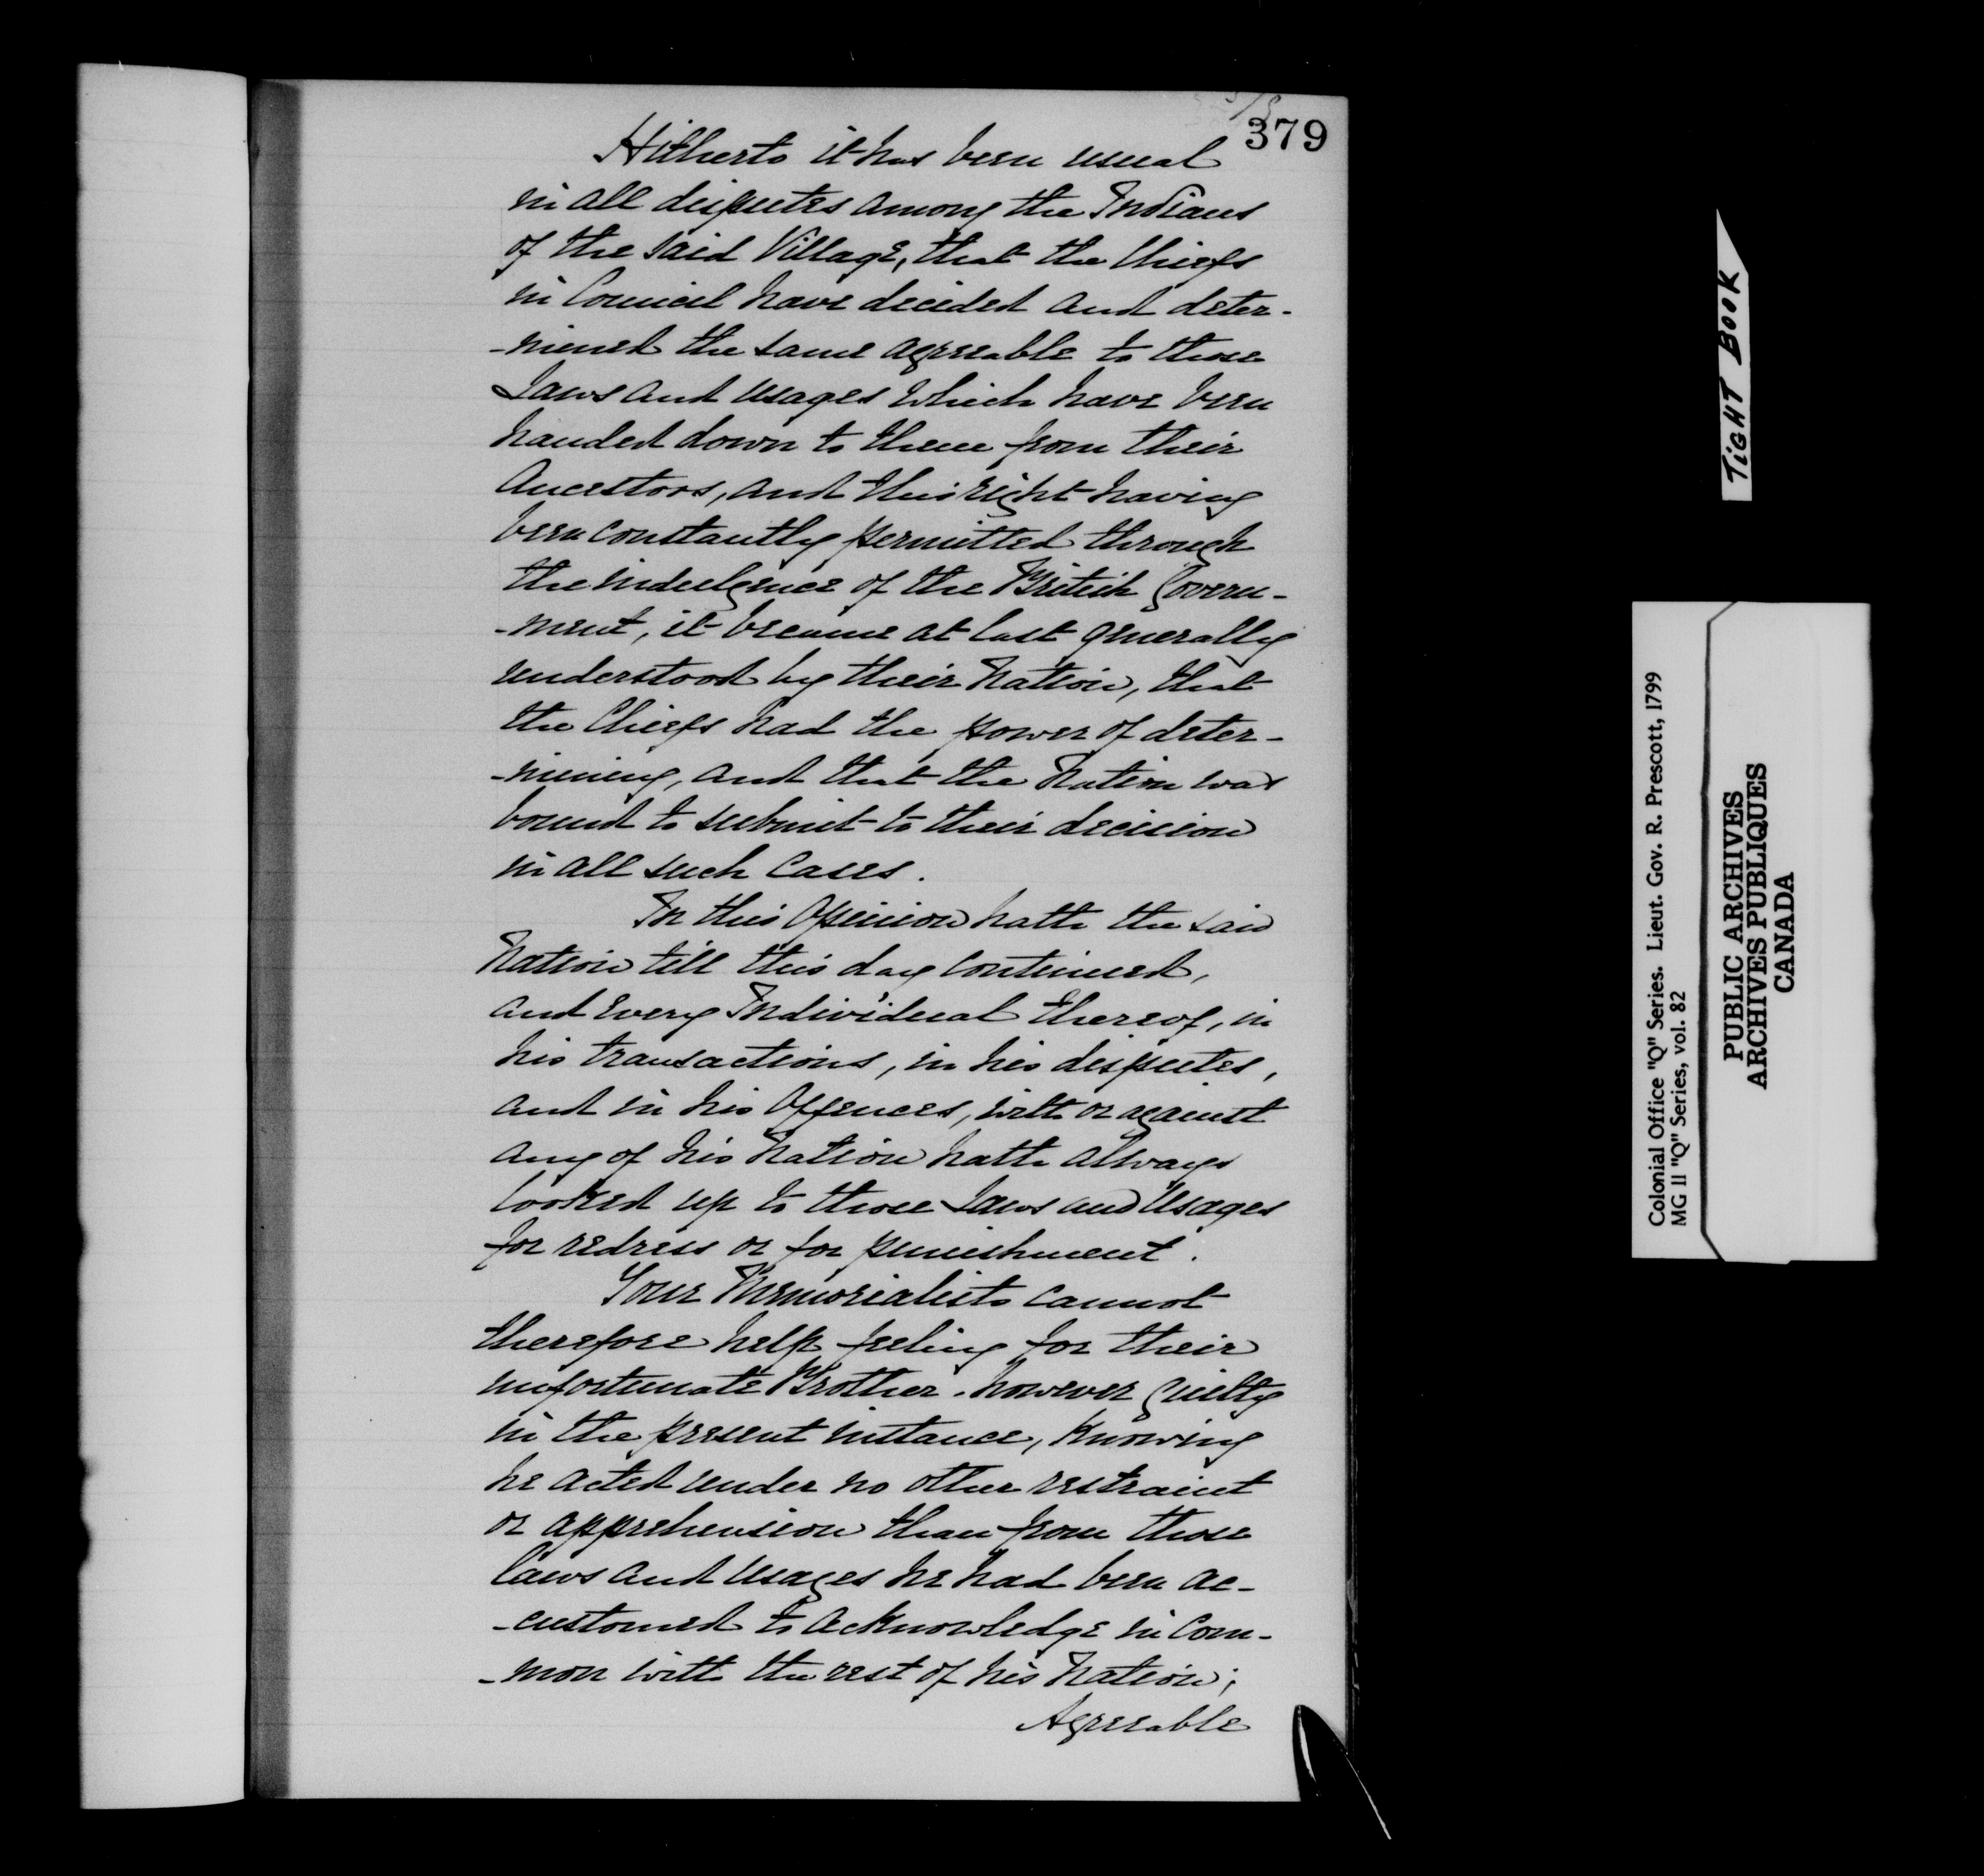 379
Hitherto it has been usual
in all disputes among the Indians
of the said Village, that the Chiefs
in Council have decided and deter-
-mined the same agreeable to those
Laws and usages which have been
handed down to them from their
Ancestors, and this right having
been constantly permitted through
the indulgence of the British Govern-
-ment, it became at last generally
understood by their Nation, that
the Chiefs had the power of deter-
-mining, and that the Nation was
bound to submit to their decision
in all such Cases.
In this Opinion hath the said
Nation till this day continued,
and every Individual thereof, in
his transactions, in his disputes,
and in his Offences, with or against
any of his Nation hath always
looked up to those Laws and Usages
for redress or for punishment.
Your Memorialists cannot
therefore help feeling for their
unfortunate Brother. however guilty
in the present instance, knowing
he acted under no other restraint
or apprehension than from those
laws and usages he had been ac-
-customed to acknowledge in Com-
-mon with the rest of his Nation;
Agreeable
TIGHT BOOK
Colonial Office "Q" Series. Lieut. Gov. R. Prescott, 1799
MG 11 "Q" Series, vol. 82
PUBLIC ARCHIVES
ARCHIVES PUBLIQUES
CANADA